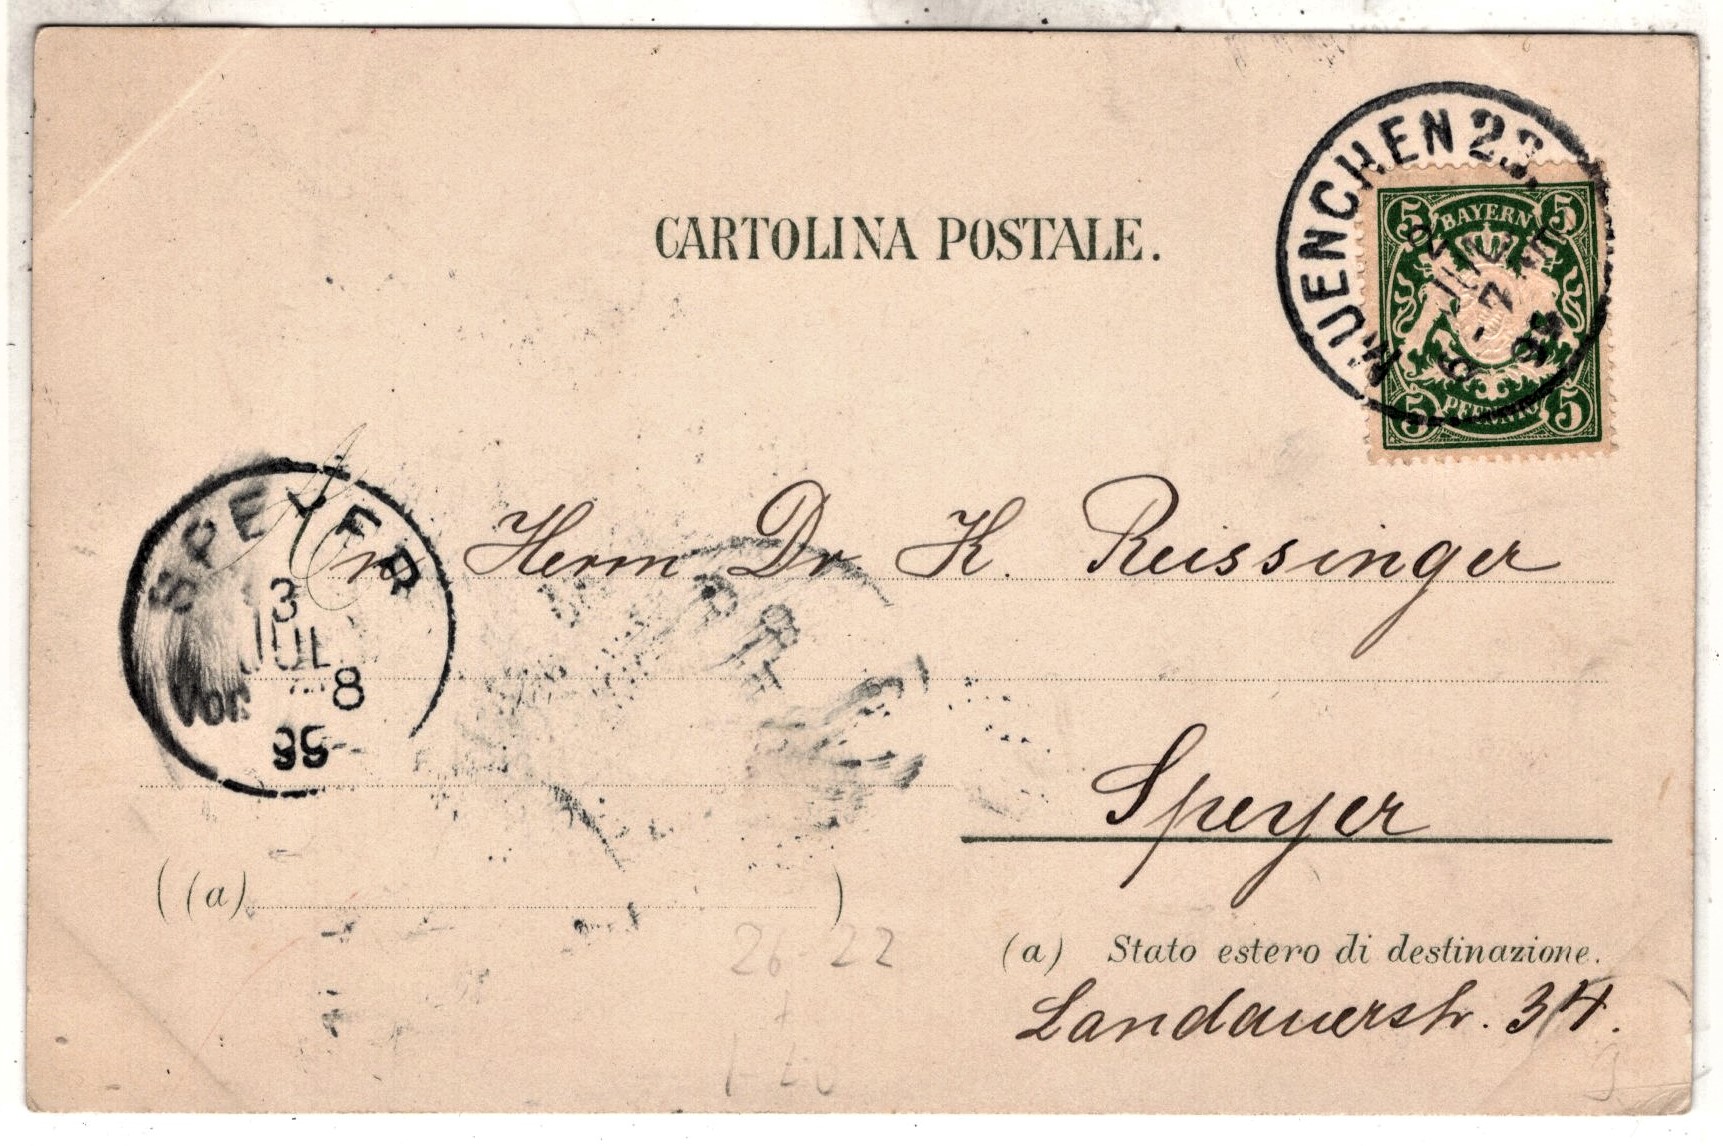 CARTOLINA POSTALE.
MUENCHEN 23.
2 JUL
6-7 NM
99
5 BAYERN 5
5 PFENNIG 5
SPEYER
13
JUL
Vor. 8
99
An Herrn Dr K. Reissinger
Speyer
( (a) )
(a) Stato estero di destinazione.
Landauerstr. 34.
26-22